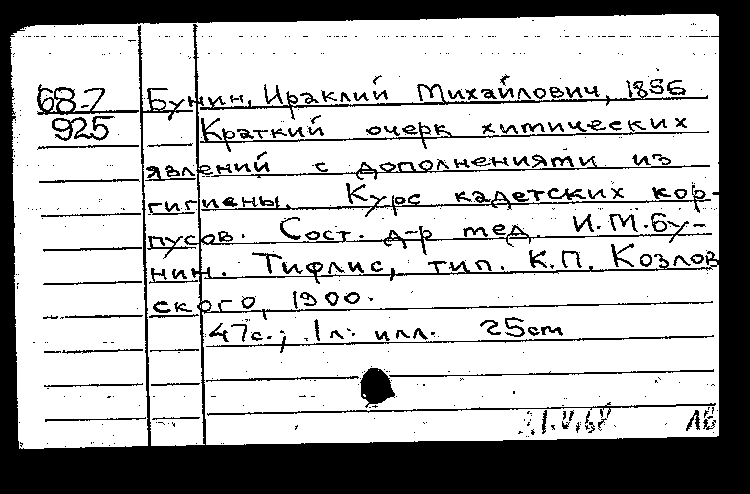 68-7 Бунин, Ираклий Михайлович, 1856
925 Краткий очерк химических
явлений с дополнениями из
гигиены. Курс кадетских кор-
пусов. Сост. д-р мед. И.М.Бу-
нин. Тифлис, тип. К.П. Козлов
ского, 1900.
47с.; 1л. илл. 25cm
1.V.68 18